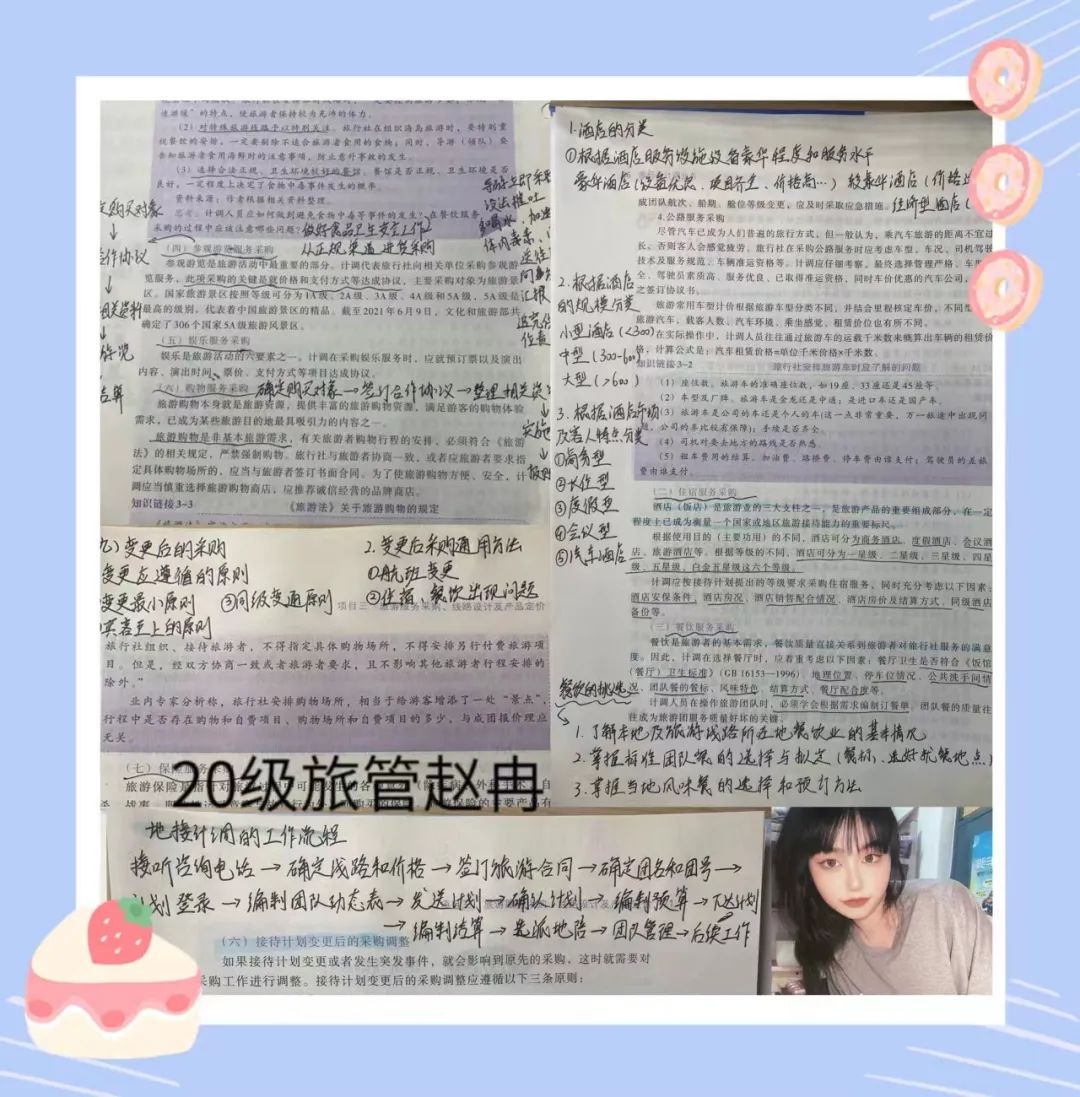 速游缓”的特点,使旅游者保持较为充沛的体力。
(2)对特殊旅游线路予以特别关注。旅行社在组织海岛旅游时,要特别重
视餐饮的安排,一定要剔除不适合旅游者食用的食物;同时,导游(领队)要
告知旅游者食用海鲜时的注意事项,防止意外事故的发生。
(3)选择合法正规、卫生环境较好的餐馆。餐馆是否正规、卫生环境是否
良好,一定程度上决定了食物中毒事件发生的概率。
资料来源:作者根据相关资料整理。
思考:计调人员应如何做到避免食物中毒等事件的发生?在餐饮服务
采购的过程中应该注意哪些问题?
做好食品卫生安全工作
从正规渠道进货采购
(四)参观游览服务采购
参观游览是旅游活动中最重要的部分。计调代表旅行社向相关单位采购参观游
览服务,此项采购的关键是就价格和支付方式等达成协议,主要采购对象为旅游景
区。国家旅游景区按照等级可分为1A级、2A级、3A级、4A级和5A级,5A级是
最高的级别,代表着中国旅游景区的精品。截至2021年6月9日,文化和旅游部共
确定了306个国家5A级旅游风景区。
(五)娱乐服务采购
娱乐是旅游活动的六要素之一。计调在采购娱乐服务时,应就预订票以及演出
内容、演出时间、票价、支付方式等项目达成协议。
(六)购物服务采购 确定购买对象→签订合作协议→整理相关资
旅游购物本身就是旅游资源,提供丰富的旅游购物资源,满足游客的购物体验
需求,已成为某些旅游目的地最具吸引力的内容之一。
旅游购物是非基本旅游需求,有关旅游者购物行程的安排,必须符合《旅游
法》的相关规定,严禁强制购物。旅行社与旅游者协商一致,或者应旅游者要求指
定具体购物场所的,应当与旅游者签订书面合同。为了使旅游购物方便、安全,计
调应当慎重选择旅游购物商店,应推荐诚信经营的品牌商店。
知识链接3-3 《旅游法》关于旅游购物的规定
购买对象
作协议
相关资料
游览
结算
实施
1.酒店的分类
①根据酒店服务设施设备豪华程度和服务水平
豪华酒店(设备优越、项目齐全、价格高…) 较豪华酒店(价格
经济型酒店(
威团队航次、船期、舱位等级变更,应及时采取应急措施。
4.公路服务采购
尽管汽车已成为人们普遍的旅行方式,但一般认为,乘汽车旅游的距离不宜过
长,否则客人会感觉疲劳。旅行社在采购公路服务时应考虑车型、车况、司机驾驶
技术及服务规范、车辆准运资格等。计调应仔细考察,最终选择管理严格、车型
全、驾驶员素质高、服务优良、已取得准运资格,同时车价优惠的汽车公司,
之签订协议书。
旅游常用车型计价根据旅游车型分类不同,并结合里程核定车价,不同车
旅游汽车,载客人数、汽车环境、乘坐感觉、租赁价位也有所不同。
在实际操作中,计调人员往往通过旅游车的运载千米数来概算出车辆的租赁价
格,计算公式是:汽车租赁价格=单位千米价格×千米数。
知识链接3-2 旅行社安排旅游车时应了解的问题
(1)座位数,旅游车的准确座位数,如19座、33座还是45座等。
(2)车型及厂牌,旅游车是金龙还是中通;是进口车还是国产车。
(3)旅游车是公司的车还是个人的车(这一点非常重要,万一旅途中出现问
题,公司的车比较有保障);手续是否齐全。
(4)司机对要去地方的路线是否熟悉。
(5)租车费用的结算,加油费、路桥费、停车费由谁支付;驾驶员的差旅
费由谁支付。
2.根据酒店
的规模分类
小型酒店(<300)
中型(300-600)
大型(>600)
3.根据酒店市场
及客人特点分类
①商务型
②长住型
③度假型
④会议型
⑤汽车酒店
(二)住宿服务采购
酒店(饭店)是旅游业的三大支柱之一,是旅游产品的重要组成部分,在一定
程度上已成为衡量一个国家或地区旅游接待能力的重要标尺。
根据使用目的(主要功用)的不同,酒店可分为商务酒店、度假酒店、会议酒
店、旅游酒店等。根据等级的不同,酒店可分为一星级、二星级、三星级、四星
级、五星级、白金五星级这六个等级。
计调应按接待计划提出的等级要求采购住宿服务,同时充分考虑以下因素:
酒店安保条件、酒店房况、酒店销售配合情况、酒店房价及结算方式、同级酒店
备份等。
(三)餐饮服务采购
餐饮是旅游者的基本需求,餐饮质量直接关系到旅游者对旅行社服务的满意
度。因此,计调在选择餐厅时,应着重考虑以下因素:餐厅卫生是否符合《饭馆
(餐厅)卫生标准》(GB 16153—1996)、地理位置、停车位情况、公共洗手间情
况、团队餐的餐标、风味特色、结算方式、餐厅配合度等。
计调人员在操作旅游团队时,必须学会根据需求编制订餐单。团队餐的质量往
往成为旅游团服务质量好坏的关键。
餐饮的挑选
1.了解本地及旅游线路所在地餐饮业的基本情况
2.掌握标准团队餐的选择与拟定(餐标、选好就餐地点)
3.掌握当地风味餐的选择和预订方法
九)变更后的采购
变更应遵循的原则
变更最小原则 ③同级变通原则
宾客至上的原则
2.变更后采购通用方法
①航班变更
②住宿、餐饮出现问题
项目三 旅游服务采购、线路设计及产品定价
旅行社组织、接待旅游者,不得指定具体购物场所,不得安排另行付费旅游项
目。但是,经双方协商一致或者旅游者要求,且不影响其他旅游者行程安排的
除外。”
业内专家分析称,旅行社安排购物场所,相当于给游客增添了一处“景点”,
行程中是否存在购物和自费项目、购物场所和自费项目的多少,与成团报价理应
无关。
(七)保险服务采
20级旅管赵冉
地接计调的工作流程
接听咨询电话→确定线路和价格→签订旅游合同→确定团名和团号→
计划登录→编制团队动态表→发送计划→确认计划→编制预算→下达计划
→编制结算→选派地陪→团队管理→后续工作
(六)接待计划变更后的采购调整
如果接待计划变更或者发生突发事件,就会影响到原先的采购,这时就需要对
采购工作进行调整。接待计划变更后的采购调整应遵循以下三条原则: